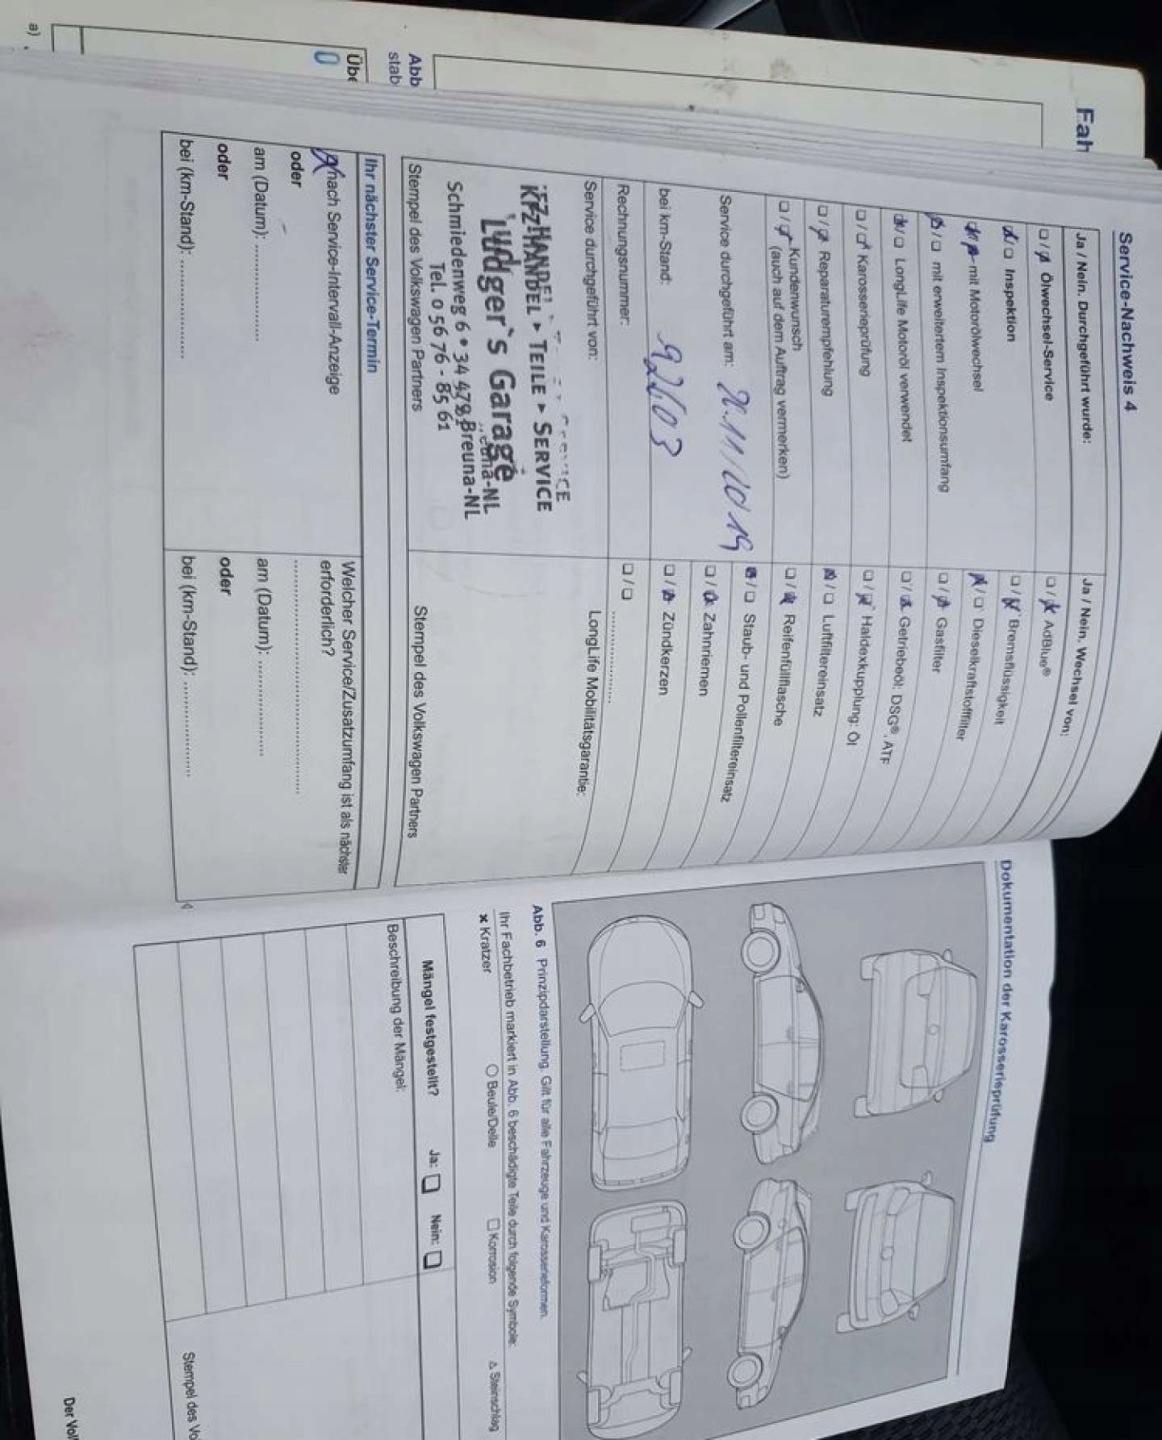 Fah
Abb
stab
Übe
a)
Service-Nachweis 4
Ja / Nein. Durchgeführt wurde:
❏ / ❏ Ölwechsel-Service
❏ / ❏ Inspektion
❏ / ❏ mit Motorölwechsel
❏ / ❏ mit erweitertem Inspektionsumfang
❏ / ❏ LongLife Motoröl verwendet
❏ / ❏ Karosserieprüfung
❏ / ❏ Reparaturempfehlung
❏ / ❏ Kundenwunsch
(auch auf dem Auftrag vermerken)
Service durchgeführt am:
bei km-Stand: 92603
Rechnungsnummer:
Service durchgeführt von:
KFZ-HANDEL ▸ TEILE ▸ SERVICE
Ludger`s Garage
Schmiedenweg 6 • 34 479 Breuna-NL
Tel. 0 56 76 - 85 61
Stempel des Volkswagen Partners
Ja / Nein. Wechsel von:
❏ / ❏ AdBlue®
❏ / ❏ Bremsflüssigkeit
❏ / ❏ Dieselkraftstofffilter
❏ / ❏ Gasfilter
❏ / ❏ Getriebeöl: DSG®, ATF
❏ / ❏ Haldexkupplung: Öl
❏ / ❏ Luftfiltereinsatz
❏ / ❏ Reifenfüllflasche
❏ / ❏ Staub- und Pollenfiltereinsatz
❏ / ❏ Zahnriemen
❏ / ❏ Zündkerzen
❏ / ❏ ....................
LongLife Mobilitätsgarantie:
Stempel des Volkswagen Partners
Ihr nächster Service-Termin
nach Service-Intervall-Anzeige
oder
am (Datum): ....................
oder
bei (km-Stand): ....................
Welcher Service/Zusatzumfang ist als nächster
erforderlich?
........................................
am (Datum): ....................
oder
bei (km-Stand): ....................
Dokumentation der Karosserieprüfung
Abb. 6 Prinzipdarstellung: Gilt für alle Fahrzeuge und Karosserieformen.
Ihr Fachbetrieb markiert in Abb. 6 beschädigte Teile durch folgende Symbole:
× Kratzer ○ Beule/Delle □ Korrosion △ Steinschlag
Mängel festgestellt? Ja: ❏ Nein: ❏
Beschreibung der Mängel:
Stempel des Vo
Der Vol